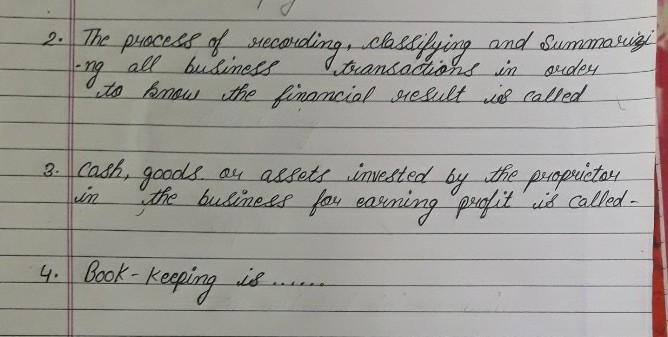 2. The process of recording, classifying and Summarizi
-ng all business transactions in order
to know the financial result is called
3. Cash, goods. or assets invested by the proprietor
in the business for earning profit is called-
4. Book-keeping is ......